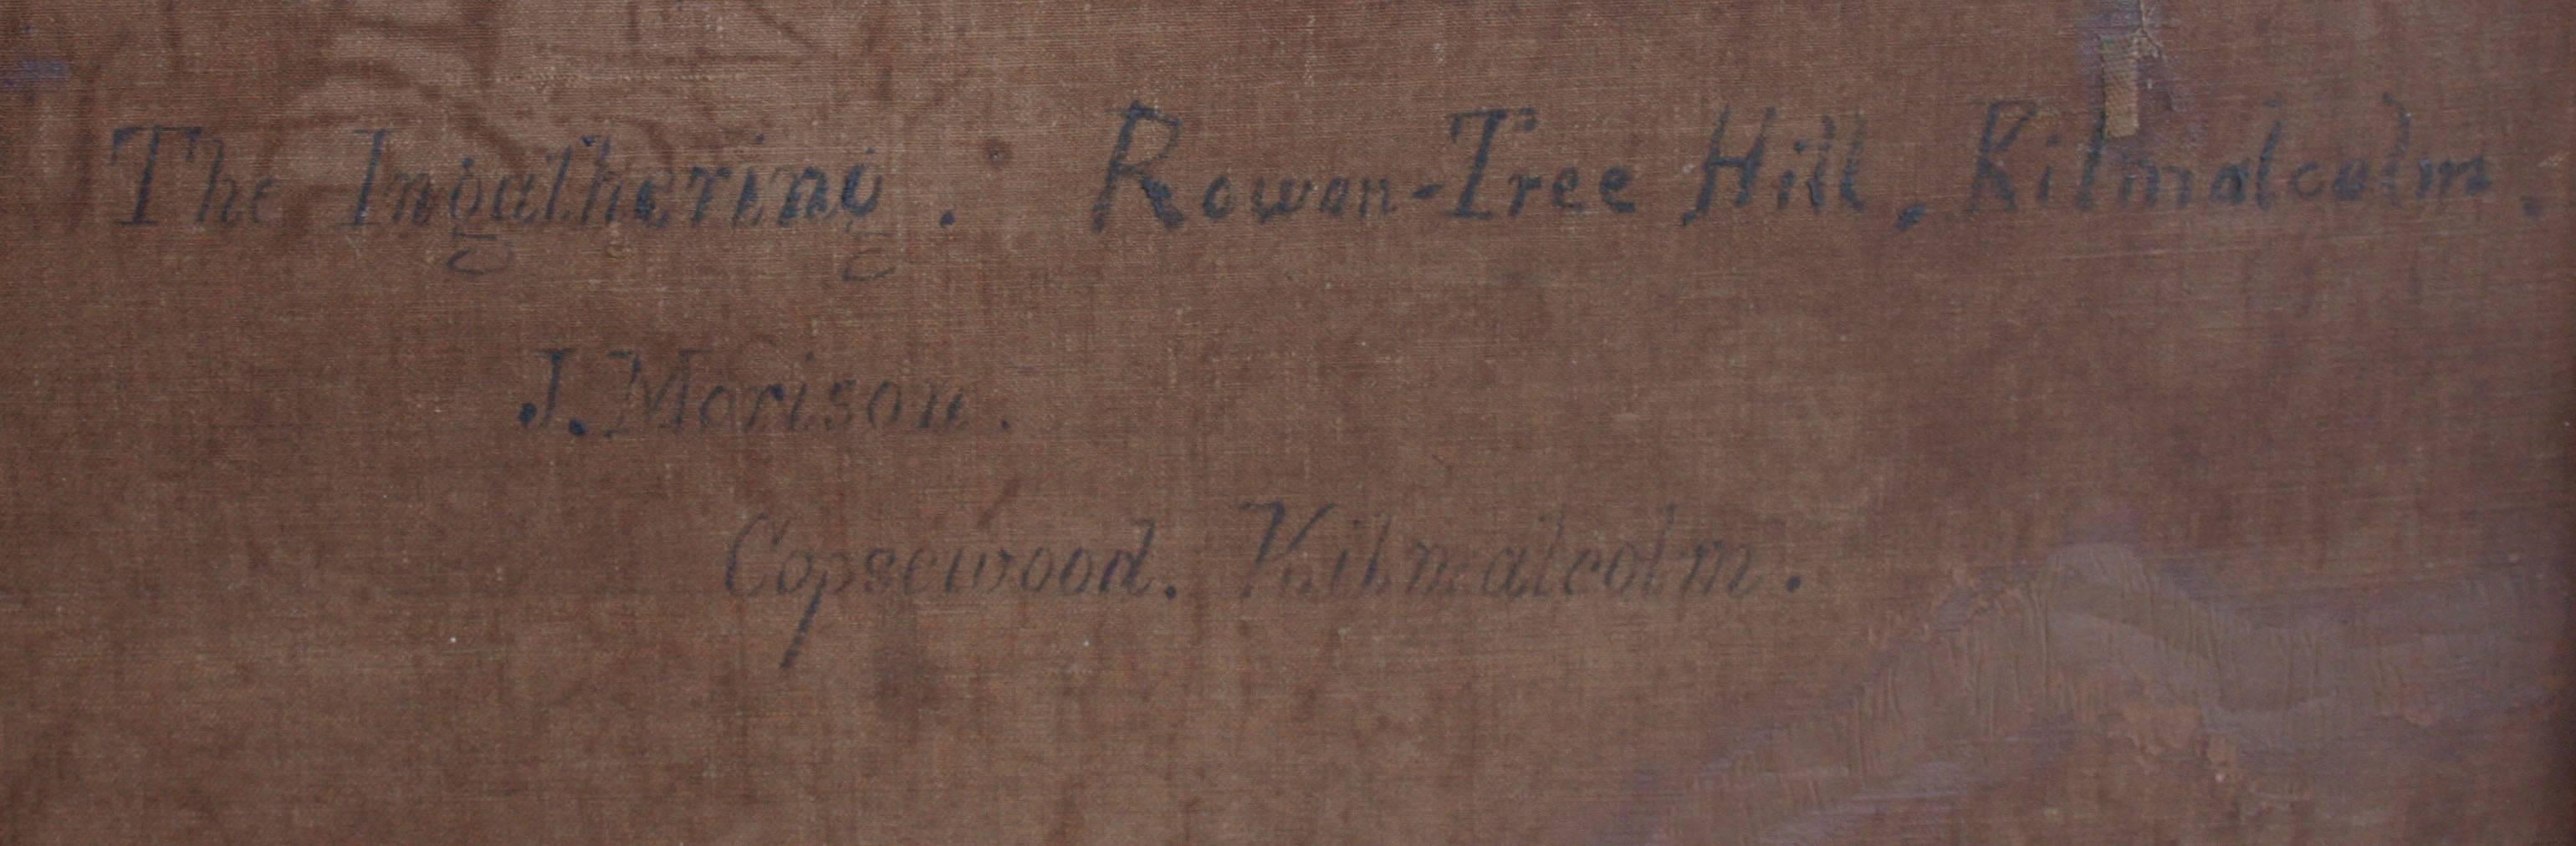 The Ingathering. Rowan-Tree Hill, Kilmalcolm.
J. Morison.
Copsewood. Kilmalcolm.